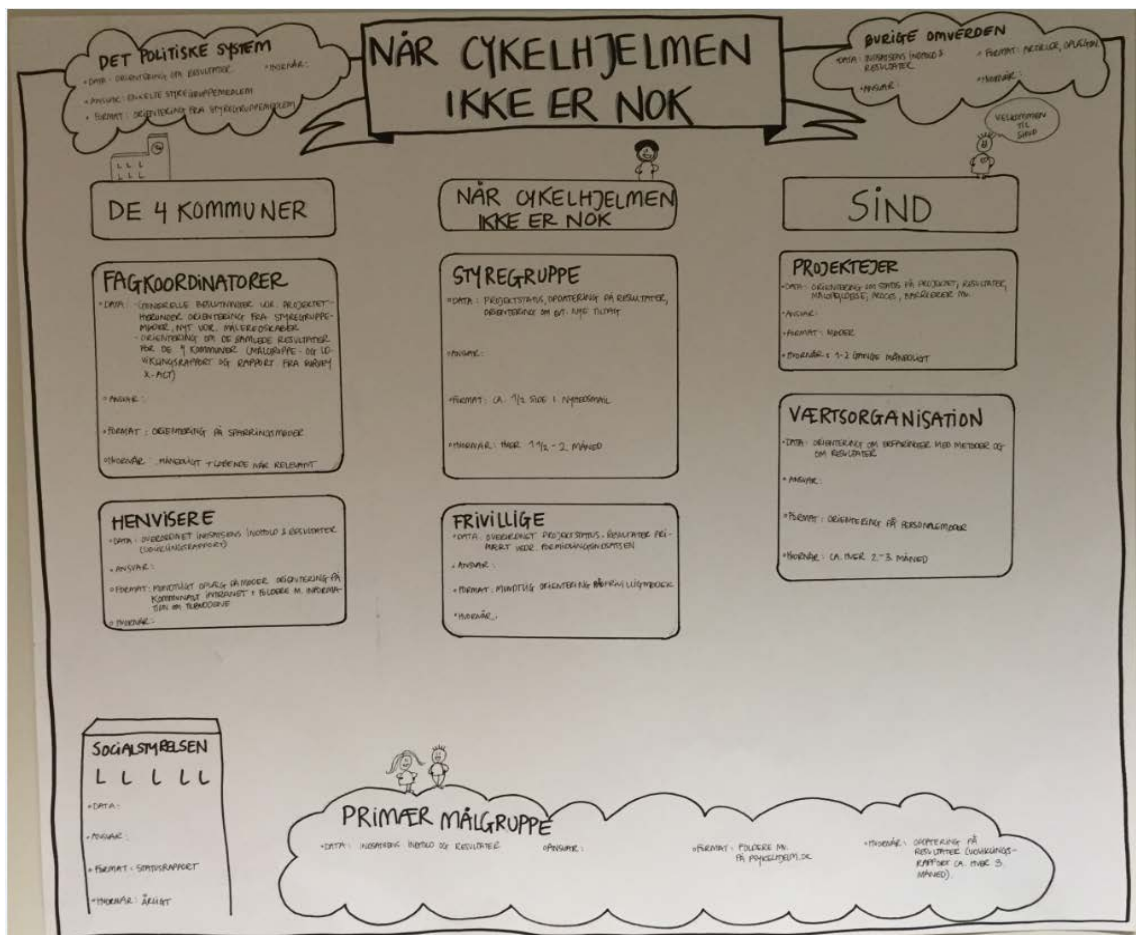 DET POLITISKE SYSTEM
• DATA: ORIENTERING OM RESULTATER
• HVORNÅR:
• ANSVAR: ENKELTE STYREGRUPPEMEDLEM
• FORMAT: ORIENTERING FRA STYREGRUPPEMEDLEM
NÅR CYKELHJELMEN
IKKE ER NOK
ØVRIGE OMVERDEN
• DATA: INDSATSENS INDHOLD &
RESULTATER
• FORMAT: ARTIKLER, OPLÆG M.
• ANSVAR:
• HVORNÅR:
VELKOMMEN
TIL
SIND
DE 4 KOMMUNER
FAGKOORDINATORER
• DATA: - GENERELLE BESLUTNINGER VDR. PROJEKTET -
HERUNDER ORIENTERING FRA STYREGRUPPE-
MØDER, NYT VDR. MÅLEREDSKABER
- ORIENTERING OM DE SAMLEDE RESULTATER
FOR DE 4 KOMMUNER (MÅLGRUPPE- OG UD-
VIKLINGSRAPPORT OG RAPPORT FRA SURVEY
X-ACT)
• ANSVAR:
• FORMAT: ORIENTERING PÅ SPARRINGSMØDER
• HVORNÅR: MÅNEDLIGT + LØBENDE NÅR RELEVANT
HENVISERE
• DATA: OVERORDNET INDSATSENS INDHOLD & RESULTATER
(UDVIKLINGSRAPPORT)
• ANSVAR:
• FORMAT: MUNDTLIGT OPLÆG PÅ MØDER. ORIENTERING PÅ
KOMMUNALT INTRANET + FOLDERE M. INFORMA-
TION OM TILBUDDENE
• HVORNÅR:
NÅR CYKELHJELMEN
IKKE ER NOK
STYREGRUPPE
• DATA: PROJEKTSTATUS, OPDATERING PÅ RESULTATER,
ORIENTERING OM EVT. NYE TILTAG
• ANSVAR:
• FORMAT: CA. 1/2 SIDE I NYHEDSMAIL
• HVORNÅR: HVER 1 1/2 - 2. MÅNED
FRIVILLIGE
• DATA: OVERORDNET PROJEKTSTATUS. RESULTATER PRI-
MÆRT VEDR. FORMIDLINGSINDSATSEN
• ANSVAR:
• FORMAT: MUNDTLIG ORIENTERING PÅ FRIVILLIGMØDER
• HVORNÅR:
SIND
PROJEKTEJER
• DATA: ORIENTERING OM STATUS PÅ PROJEKTET, RESULTATER,
MÅLOPFYLDELSE, PROCES, BARRIERER MV.
• ANSVAR:
• FORMAT: MØDER
• HVORNÅR: 1-2 GANGE MÅNEDLIGT
VÆRTSORGANISATION
• DATA: ORIENTERING OM ERFARINGER MED METODER OG
OM RESULTATER
• ANSVAR:
• FORMAT: ORIENTERING PÅ PERSONALEMØDER
• HVORNÅR: CA. HVER 2.-3. MÅNED
SOCIALSTYRELSEN
• DATA:
• ANSVAR:
• FORMAT: STATUSRAPPORT
• HVORNÅR: ÅRLIGT
PRIMÆR MÅLGRUPPE
• DATA: INDSATSENS INDHOLD OG RESULTATER
• ANSVAR:
• FORMAT: FOLDERE MV.
PÅ PSYKELHJELM.DK
• HVORNÅR: OPDATERING PÅ
RESULTATER (UDVIKLINGS-
RAPPORT CA. HVER 3.
MÅNED).